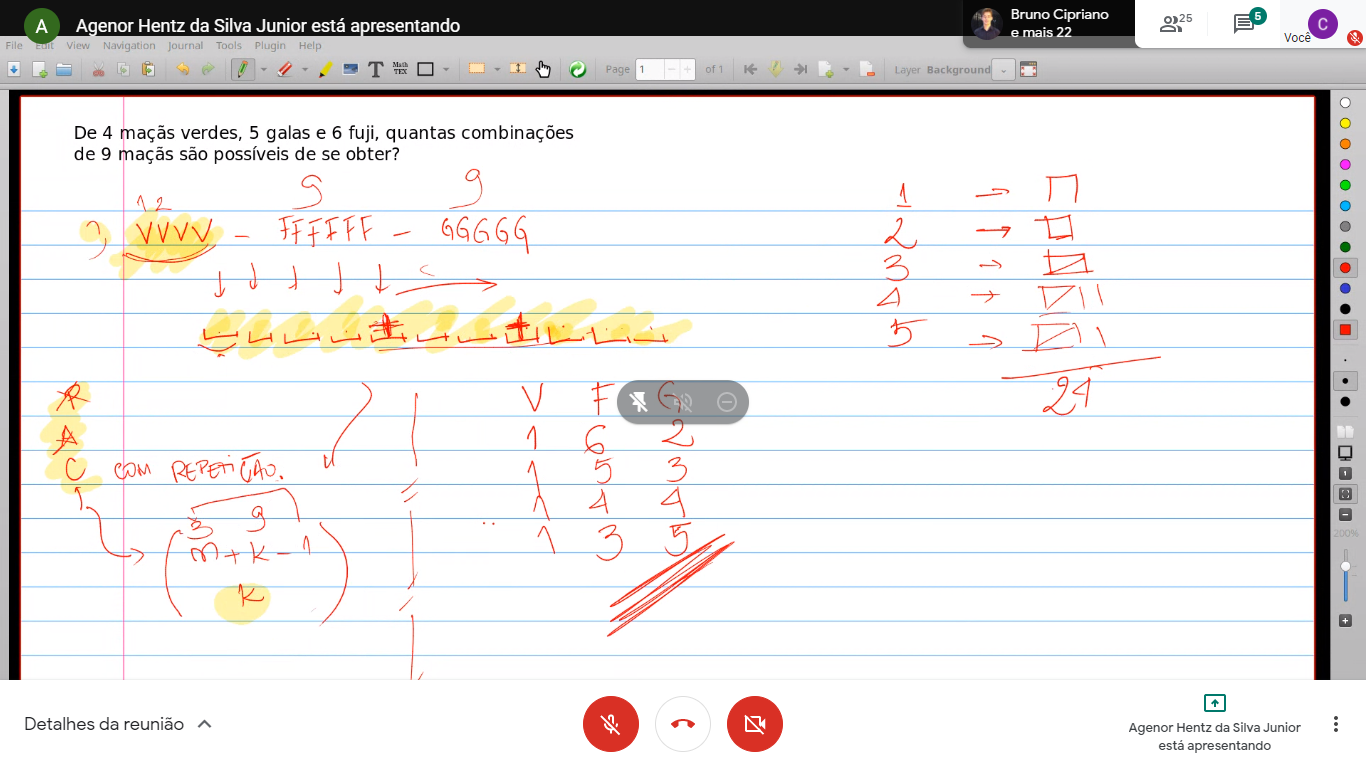 A Agenor Hentz da Silva Junior está apresentando
Bruno Cipriano
e mais 22
25
5
Você
C
File Edit View Navigation Journal Tools Plugin Help
T Math TEX Page 1 of 1 Layer Background
De 4 maçãs verdes, 5 galas e 6 fuji, quantas combinações
de 9 maçãs são possíveis de se obter?
9 9
1 2
VVVV - FFFFFF - GGGGG
1 →
2 →
3 →
4 →
5 →
24
R
A
C COM REPETIÇÃO.
3 9
m + k - 1
k
V F G
1 6 2
1 5 3
1 4 4
1 3 5
200%
Detalhes da reunião
Agenor Hentz da Silva Junior
está apresentando